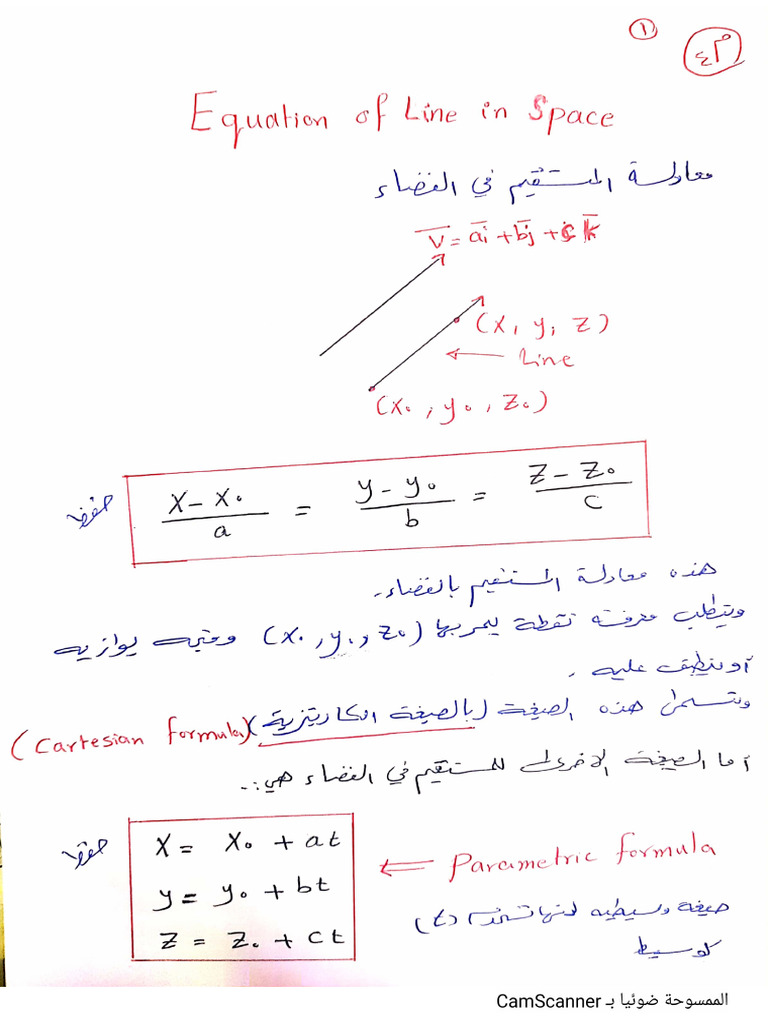 ١
م٤
Equation of Line in Space
معادلة المستقيم في الفضاء
V̅ = a̅i + b̅j + c k̅
(x, y, z)
Line
(x₀, y₀, z₀)
حفظ
(x - x₀)/a = (y - y₀)/b = (z - z₀)/c
هذه معادلة المستقيم بالفضاء.
ويتطلب معرفة نقطة يمر بها (x₀, y₀, z₀) ومتجه يوازيه
أو ينطبق عليه.
وتسمى هذه الصيغة (بالصيغة الكارتيزية) (Cartesian formula)
أما الصيغة الاخرى للمستقيم في الفضاء هي:.
حفظ
x = x₀ + at
y = y₀ + bt
z = z₀ + ct
← Parametric formula
صيغة وسيطيه لانها تستخدم (t)
كوسيط
الممسوحة ضوئيا بـ CamScanner